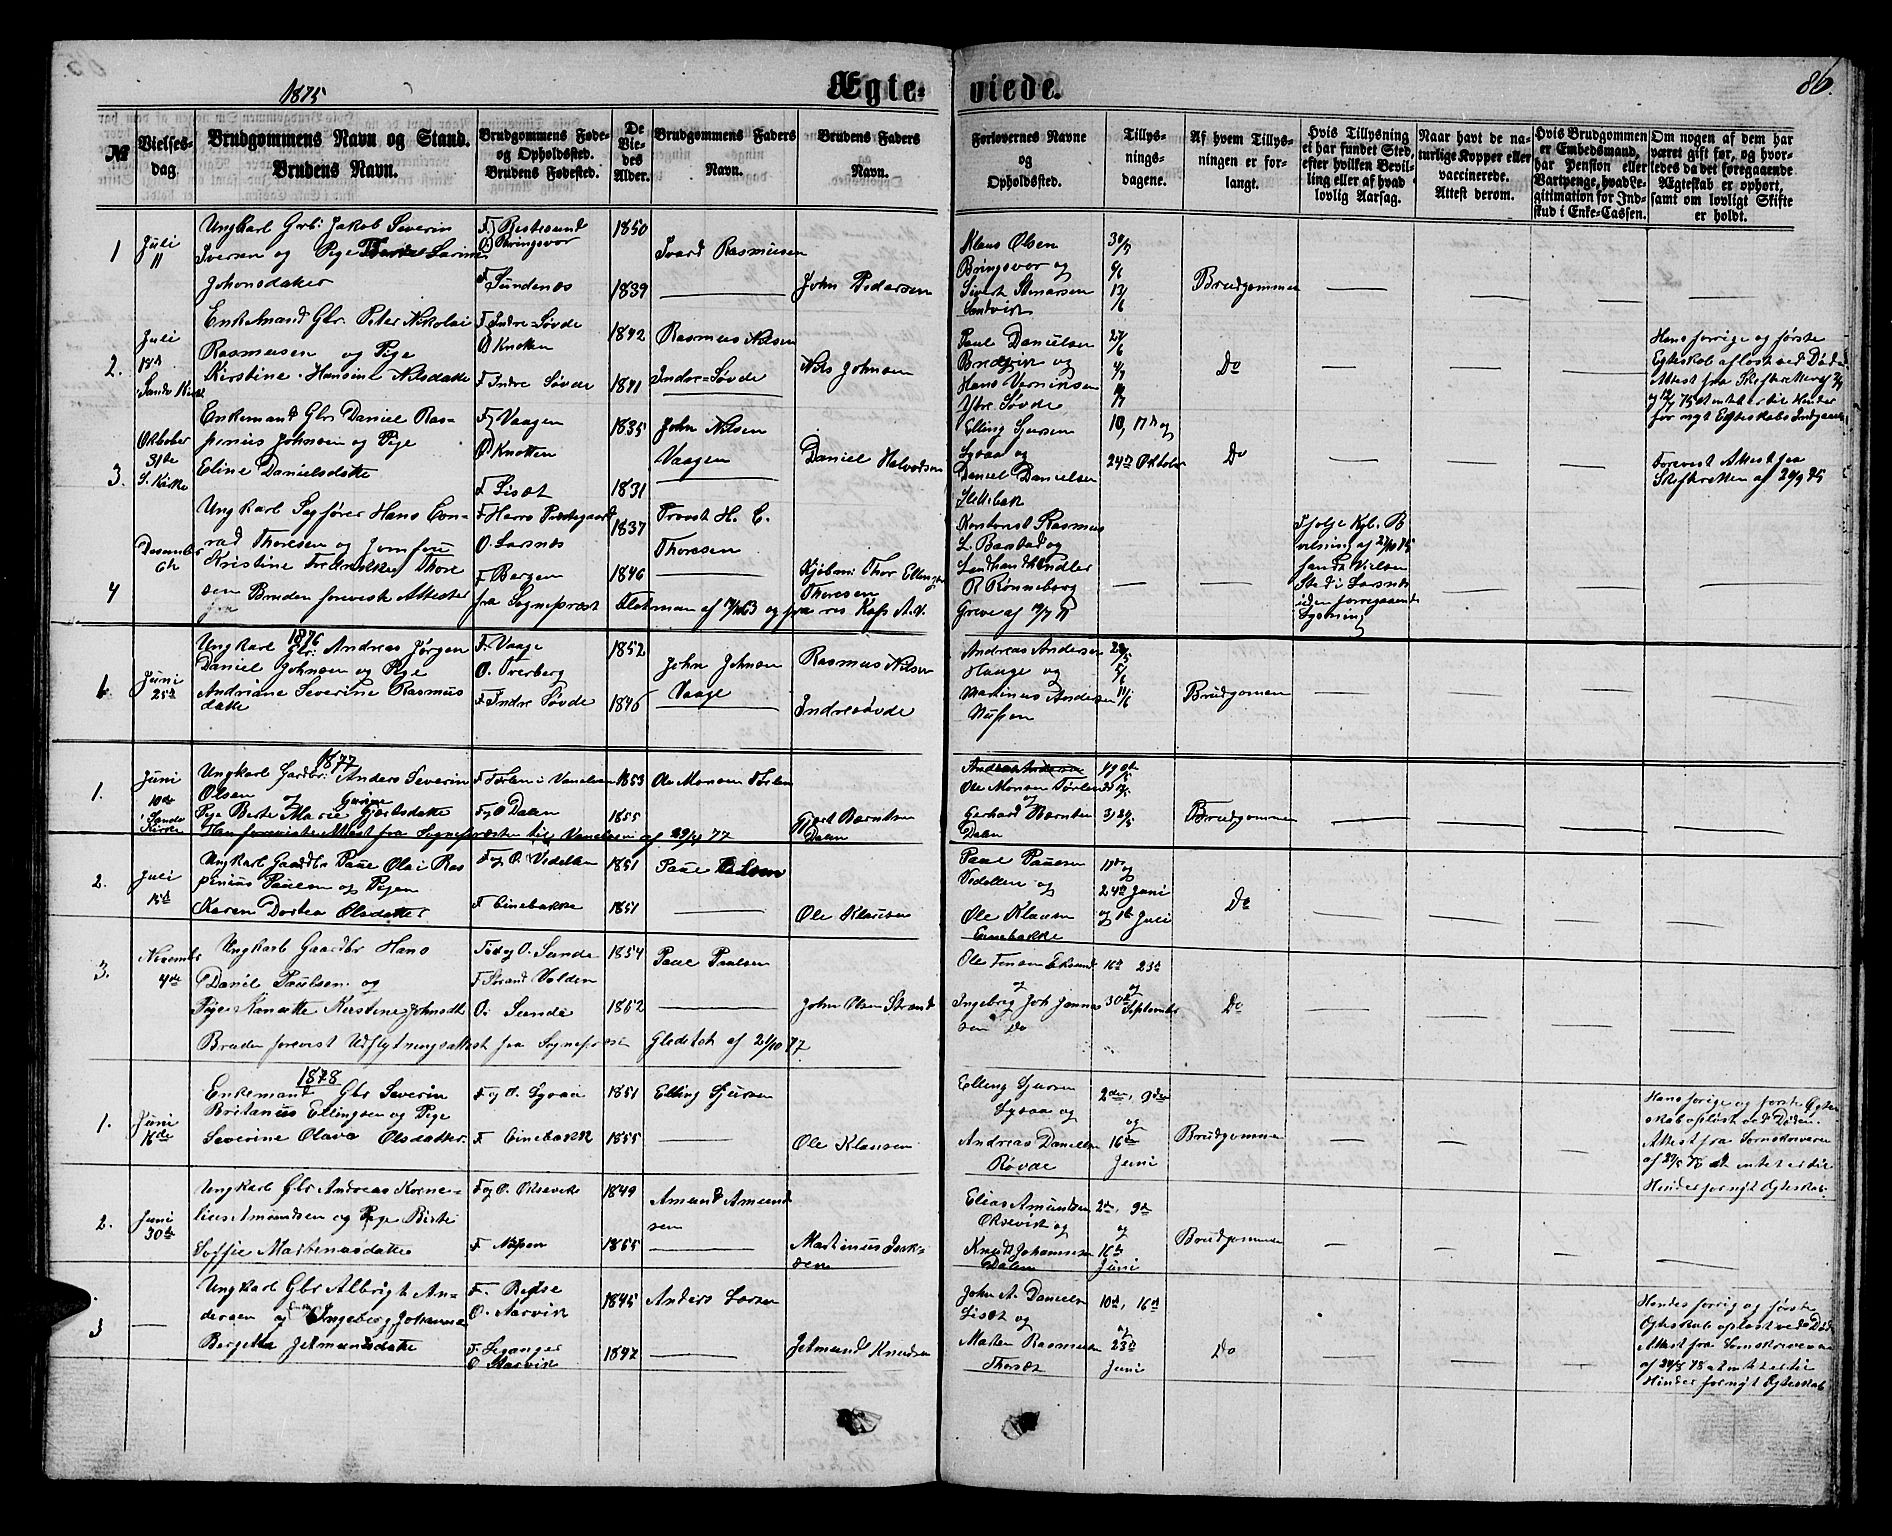 1875
Ægte-
viede.
86.
№
Vielses-
dag.
Brudgommens Navn og Stand.
Brudens Navn.
Brudgommens Føde-
og Opholdssted.
Brudens Fødested.
De
Vie-
des
Alder.
Brudgommens Faders
Navn.
Brudens Faders
Navn.
Forlovernes Navne
og
Opholdssted.
Tillys-
nings-
dagene.
Af hvem Tillys-
ningen er for-
langt.
Hvis Tillysning
ei har fundet Sted,
efter hvilken Bevil-
ling eller af hvad
lovlig Aarsag.
Naar havt de na-
turlige Kopper eller
vaccinerede.
Attest derom.
Hvis Brudgommen
er Embedsmand,
har Pension eller
Vartpenge, hvad Le-
gitimation for Ind-
skud i Enke-Cassen.
Om nogen af dem har
været gift før, og hvor-
ledes da det foregaaende
Ægteskab er ophørt,
samt om lovligt Skifte
er holdt.
1
Juli
11
Ungkarl Grb. Jakob Severin
Iversen og Pige Larine
Johnsdatter
F
O) Bringsvor
F Sundenæs
1850
1839
Ivard Rasmussen
John Pedersen
Klaus Olsen
Bringsvor og
Sivert Stenersen
Sandvik
30/5
6/6
13/6
Brudgommen
2.
Juli
18de
Sande Kirke
Enkemand Gbr. Peter Nikolai
Rasmusen og Pige
Kirstine Hansine Nilsdatter
F Indre-Søvde
O Knotten
F Indre Søvde
1842
1841
Rasmus Nilsen
Indre-Søvde
Nils Johnsen
Paul Danielsen
og
Hans
Ytre Søvde
27/6
4/7
Do
Hans forrige og første
Egteskab afløst ved Døden
Attest fra Skifteretten af
75 at intet er til Hinder
for nyt Egteskabs Indgaaelse
3.
Oktober
31te
S. Kirke
Enkemand Gbr Daniel Ras-
penius Johnsen og Pige
Eline Danielsdatter
F) Vaagen
O) Knotten
F Liset
1835
1831
John Nilsen
Vaagen
Daniel Halvorsen
Elling Sjursen
Lysaa og
Daniel Danielsen
Slettebak
10, 17de og
24de Oktober
Do
Forevist Attest fra
Skifteretten af 29/9 75
4
Desember
6te
Ungkarl Sagfører Hans Con-
rad Thoresen og Jomfru
Kristine Fredrikke Thore
sen Bruden forevist Attester
fra
F Herrø Præstegaard
O. Larsnæs
F Bergen
fra Sognepræst
1837
1846
Provst H. C.
Thoresen
Kjøbm: Thor Ellinger
Thoresen
Rasmus
L. Barstad og
Landhandler
R Rønneberg
Greve af
Ifølge Kgl. B
vilning af 27/10 75
fandt Vielsen
Sted i Larsnæs
uden forregaaende
Lysning
1876
1.
Juni
25de
Ungkarl Gbr: Andreas Jørgen
Daniel Johnsen og Pige
Andriane Severine Rasmus
datter
F. Vaage
O. Overberg
F Indre Søvde
1852
1846
John Johnsen
Vaage
Rasmus Nilsen
Indresøvde
Andreas Andersen
Hauge og
Martinus Andersen
28/5
5/6
11/6
Brudgomen
1877
1.
Juni
10de
Sande
Kirke
Ungkarl Gaardbr. Anders Severin
Olsen og
Pige Berte Marie Gurine Gjertsdatter
Han foreviste Attest fra Sognepræsten til Vanelven af 29/4 77
F Førlen i Vanelven
F og O Dalen
1853
1855
Ole Monsen Førlen
Gjert Berntsen
Dalen
Andreas Andersen
Ole Monsen Førlen
og
Gerhard Berntsen
Dalen
Brudgommen
2.
Juli
15de
Ungkarl Gaardbr Paul Olai Ras
penius Paulsen og Pigen
Karen Dortea Olsdatter
F og O. Videllen
F Einebakke
1851
1851
Ole Klausen
Paul Paulsen
Videllen og
Ole Klausen
Einebakke
17de og
24de Juni
og 1ste Juli
Do
3.
November
4de
Ungkarl Gaardbr Hans
Daniel Paulsen og
Pige Nanette Kirstine Johnsdt
Bruden forevist Udflytningsattest fra Sognepræst Gleditch af 21/10 77
Fød og O. Sande
F Strand Volden
O. Sande
1854
1852
Paul Paulsen
John Olsen Strand
og
Ingebrig Joh Jonnas
sen Do
16de 23de
og
30te September
Do
1878
1.
Juni
16de
Enkemand Gbr Severin
Britanius Ellingsen og Pige
Severine Olava Olsdatter
F og O. Lysaa
F. Einebakk
1851
1855
Elling Sjursen
Ole Klausen
Elling Sjursen
Lysaa og
Andreas Danielsen
Røvde
2den, 9den
og
16de
Juni
Brudgommen
Hans forrige og første Egten
skab opløst ved Døden.
Attest fra Sorenskriveren
af 29/5 78 at intet er til
Hinder for nyt Egteskab.
2.
Juni
30te
Ungkarl Gbr Andreas Korne-
lius Amundsen og Pige Birte
Soffie Martinusdatter
F og O. Oksevik
1849
1855
Amund Amund
sen
Martinus Isak-
sen
Elias Amundsen
Oksevik og
Knud Johannesen
Dalen
2de, 9de
og
16de
Juni
Brudgommen
3
Ungkarl Gbr Albrigt An-
dersen og Enke Ingeborg Johanna
Bergetta Jetmundsdatter
O. Aarvik
F. Leganger
O Aarvik
1845
1847
Anders Larsen
Jetmund Knudsen
John A. Danielsen
Liset og
Maten Rasmussen
Thorsæt
10de, 16de
og
23de
Juni
Do
Hendes forrig og første
Egteskab opløst ved Død
Attest fra Sorenskriveren
af 24/5 78 at intet er til
Hinder for nyt Egteskab